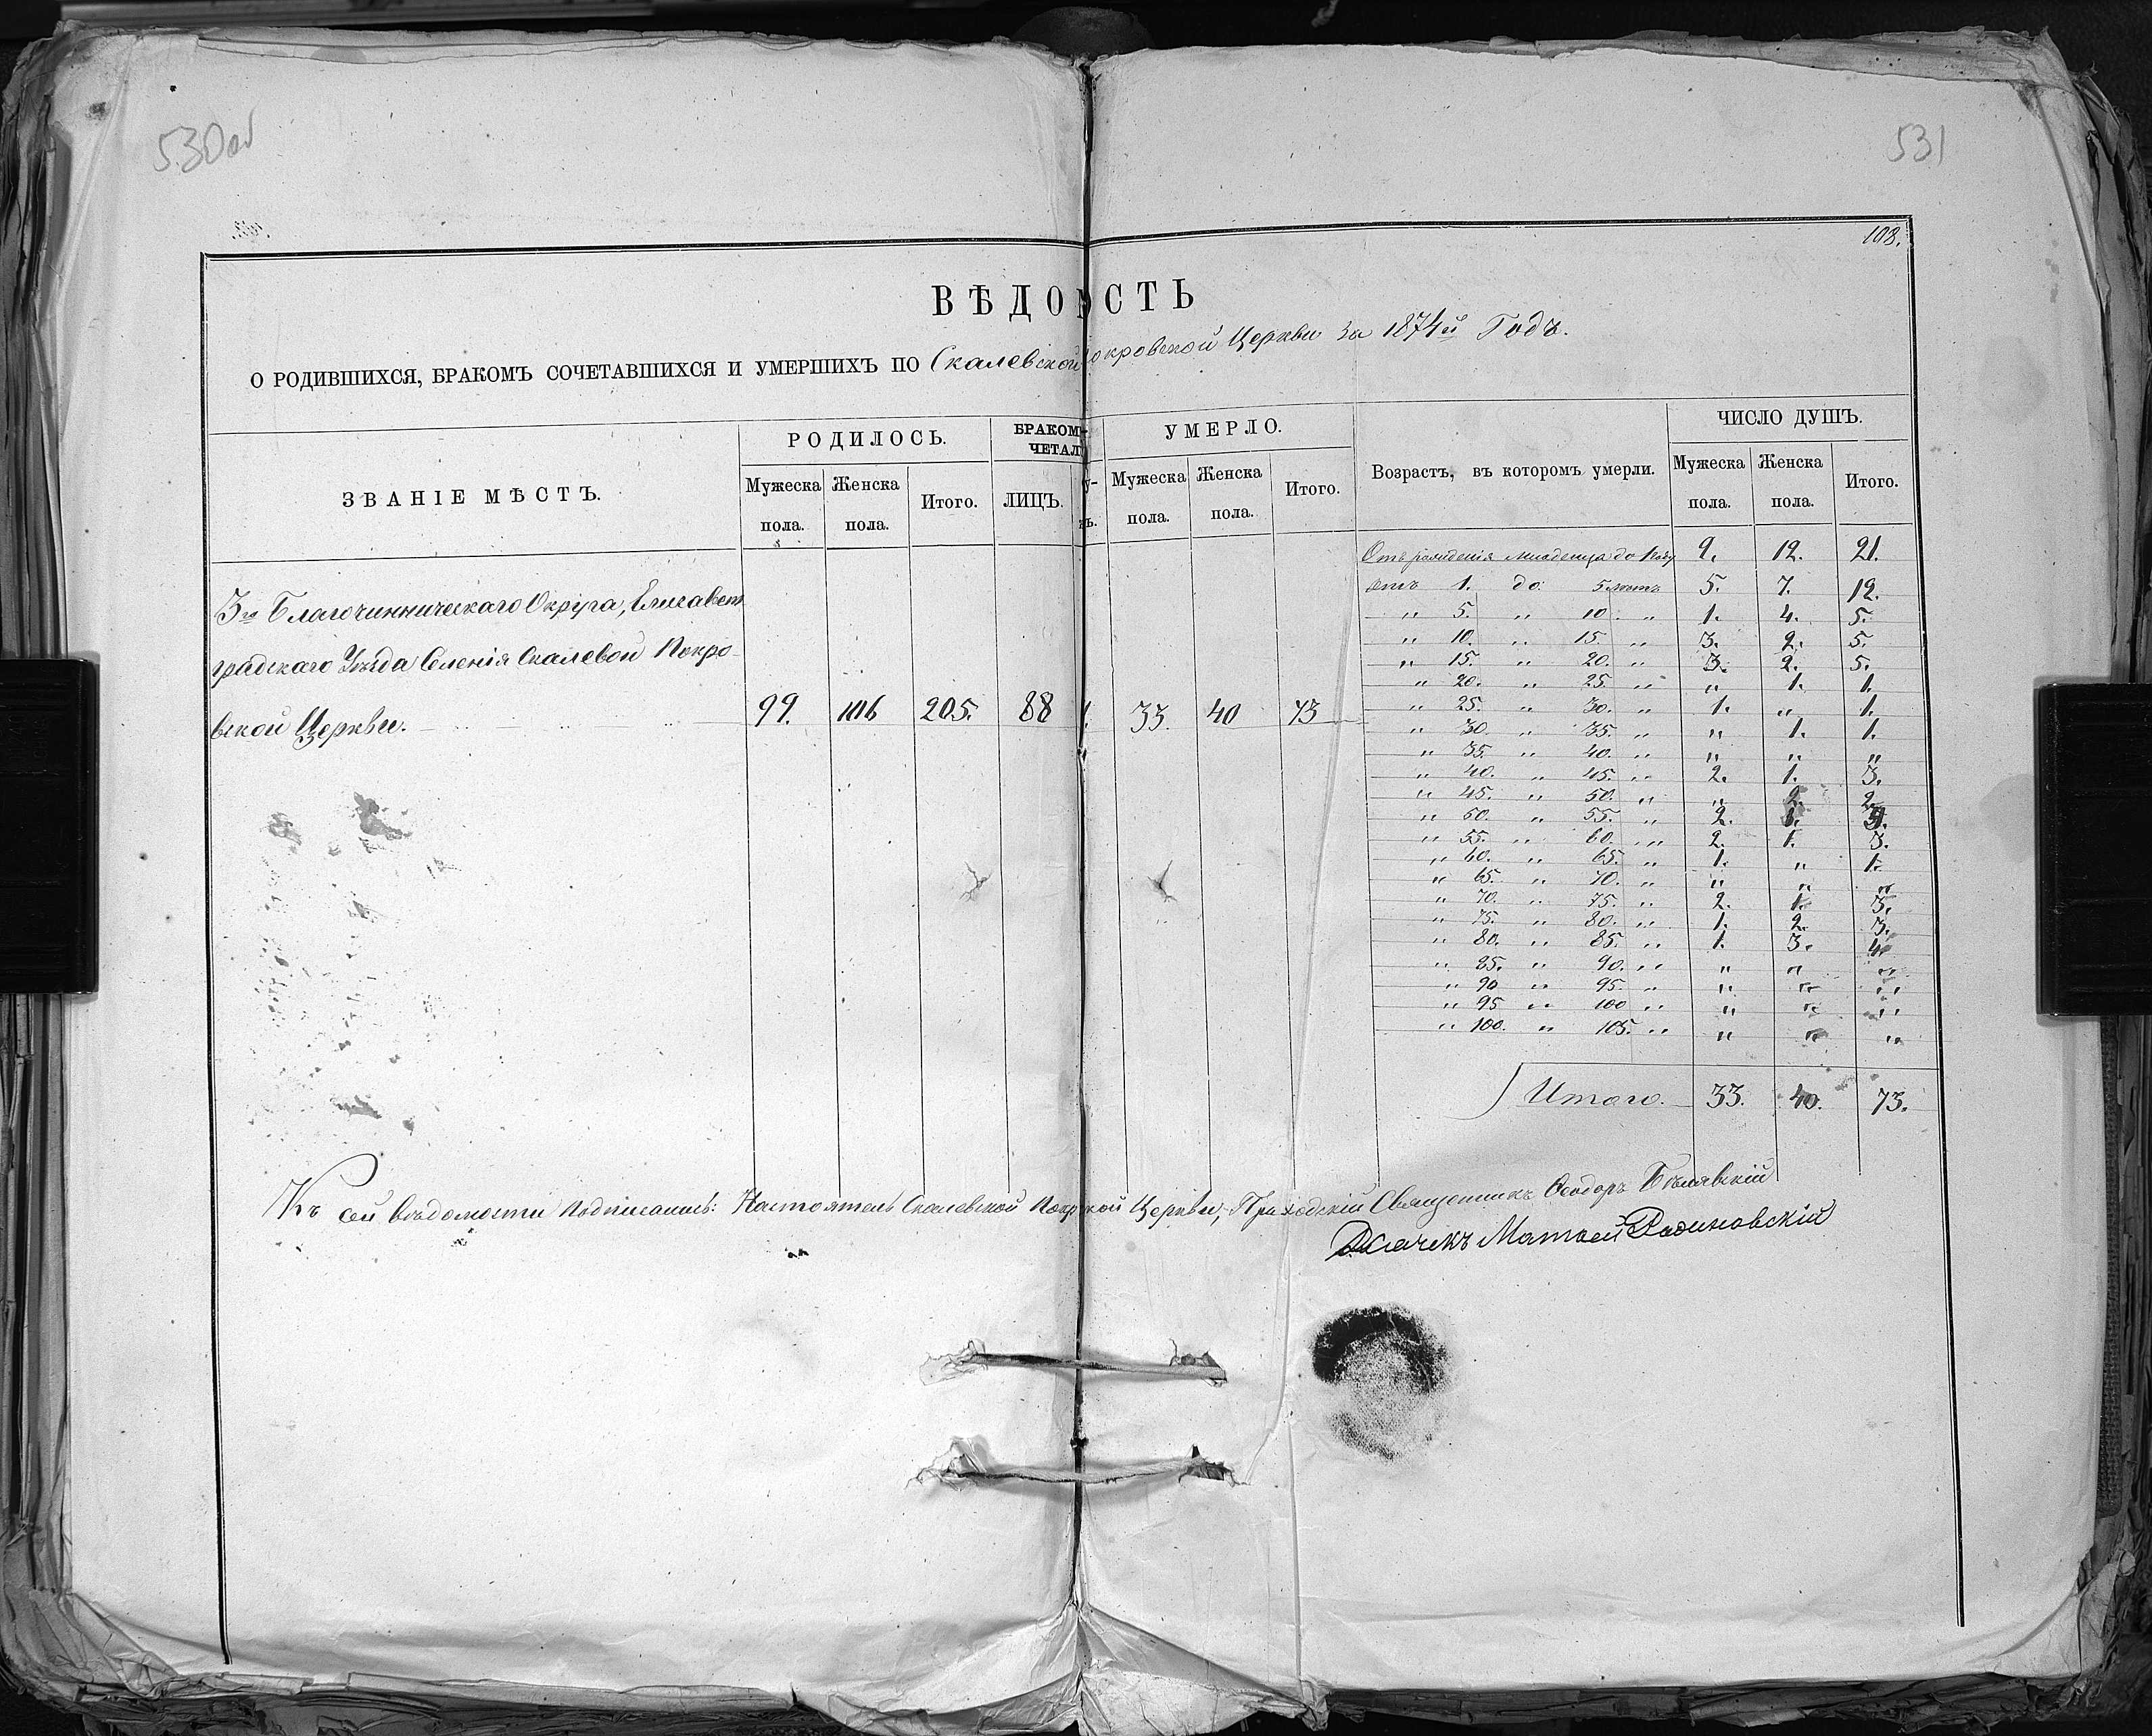 530об
531
108.
ВѢДО СТЬ
О РОДИВШИХСЯ, БРАКОМЪ СОЧЕТАВШИХСЯ И УМЕРШИХЪ ПО Скалевской окровской Церкви за 1874й Годъ.
ЗВАНІЕ МѢСТЪ. РОДИЛОСЬ. БРАКОМЪ ЧЕТАЛ УМЕРЛО. Возрастъ, въ которомъ умерли. ЧИСЛО ДУШЪ.
Мужеска пола. Женска пола. Итого. ЛИЦЪ. Мужеска пола. Женска пола. Итого. Мужеска пола. Женска пола. Итого.
3го Благочинническаго Округа, Елисавет
градскаго Уѣзда Селенія Скалевой Покро-
вской Церкви. 99. 106 205. 88 33. 40 73
Отъ рожденія младенца до 1 году 9. 12. 21.
отъ 1. до 5 лѣтъ 5. 7. 12.
" 5. " 10. " 1. 4. 5.
" 10. " 15. " 3. 2. 5.
" 15. " 20. " 3. 2. 5.
" 20. " 25. " " 1. 1.
" 25. " 30. " 1. " 1.
" 30. " 35. " " 1. 1.
" 35. " 40. " " " "
" 40. " 45. " 2. 1. 3.
" 45. " 50. " " 2. 2.
" 50. " 55. " 2. 1. 3.
" 55. " 60. " 2. 1. 3.
" 60. " 65. " 1. " 1.
" 65. " 70. " " " "
" 70. " 75. " 2. 1. 3.
" 75. " 80. " 1. 2. 3.
" 80. " 85. " 1. 3. 4.
" 85. " 90. " " " "
" 90 " 95. " " " "
" 95 " 100 " " " "
" 100. " 105. " " " "
Итого. 33. 40. 73.
Къ сей Вѣдомости подписались: Настоятель Скалевской Покр кой Церкви, Приходскій Священникъ Ѳеодоръ Бѣлявскій
Дьячекъ Матѳей Родиновскій